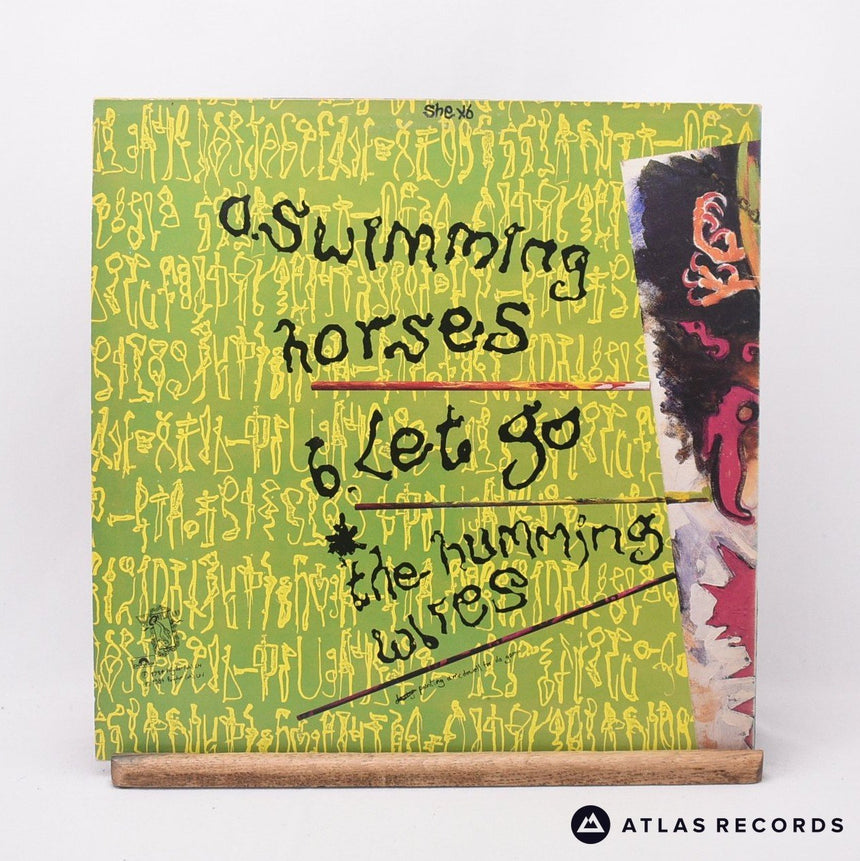 she x6
a. Swimming
horses
b. Let go
* the humming
wires
ATLAS RECORDS